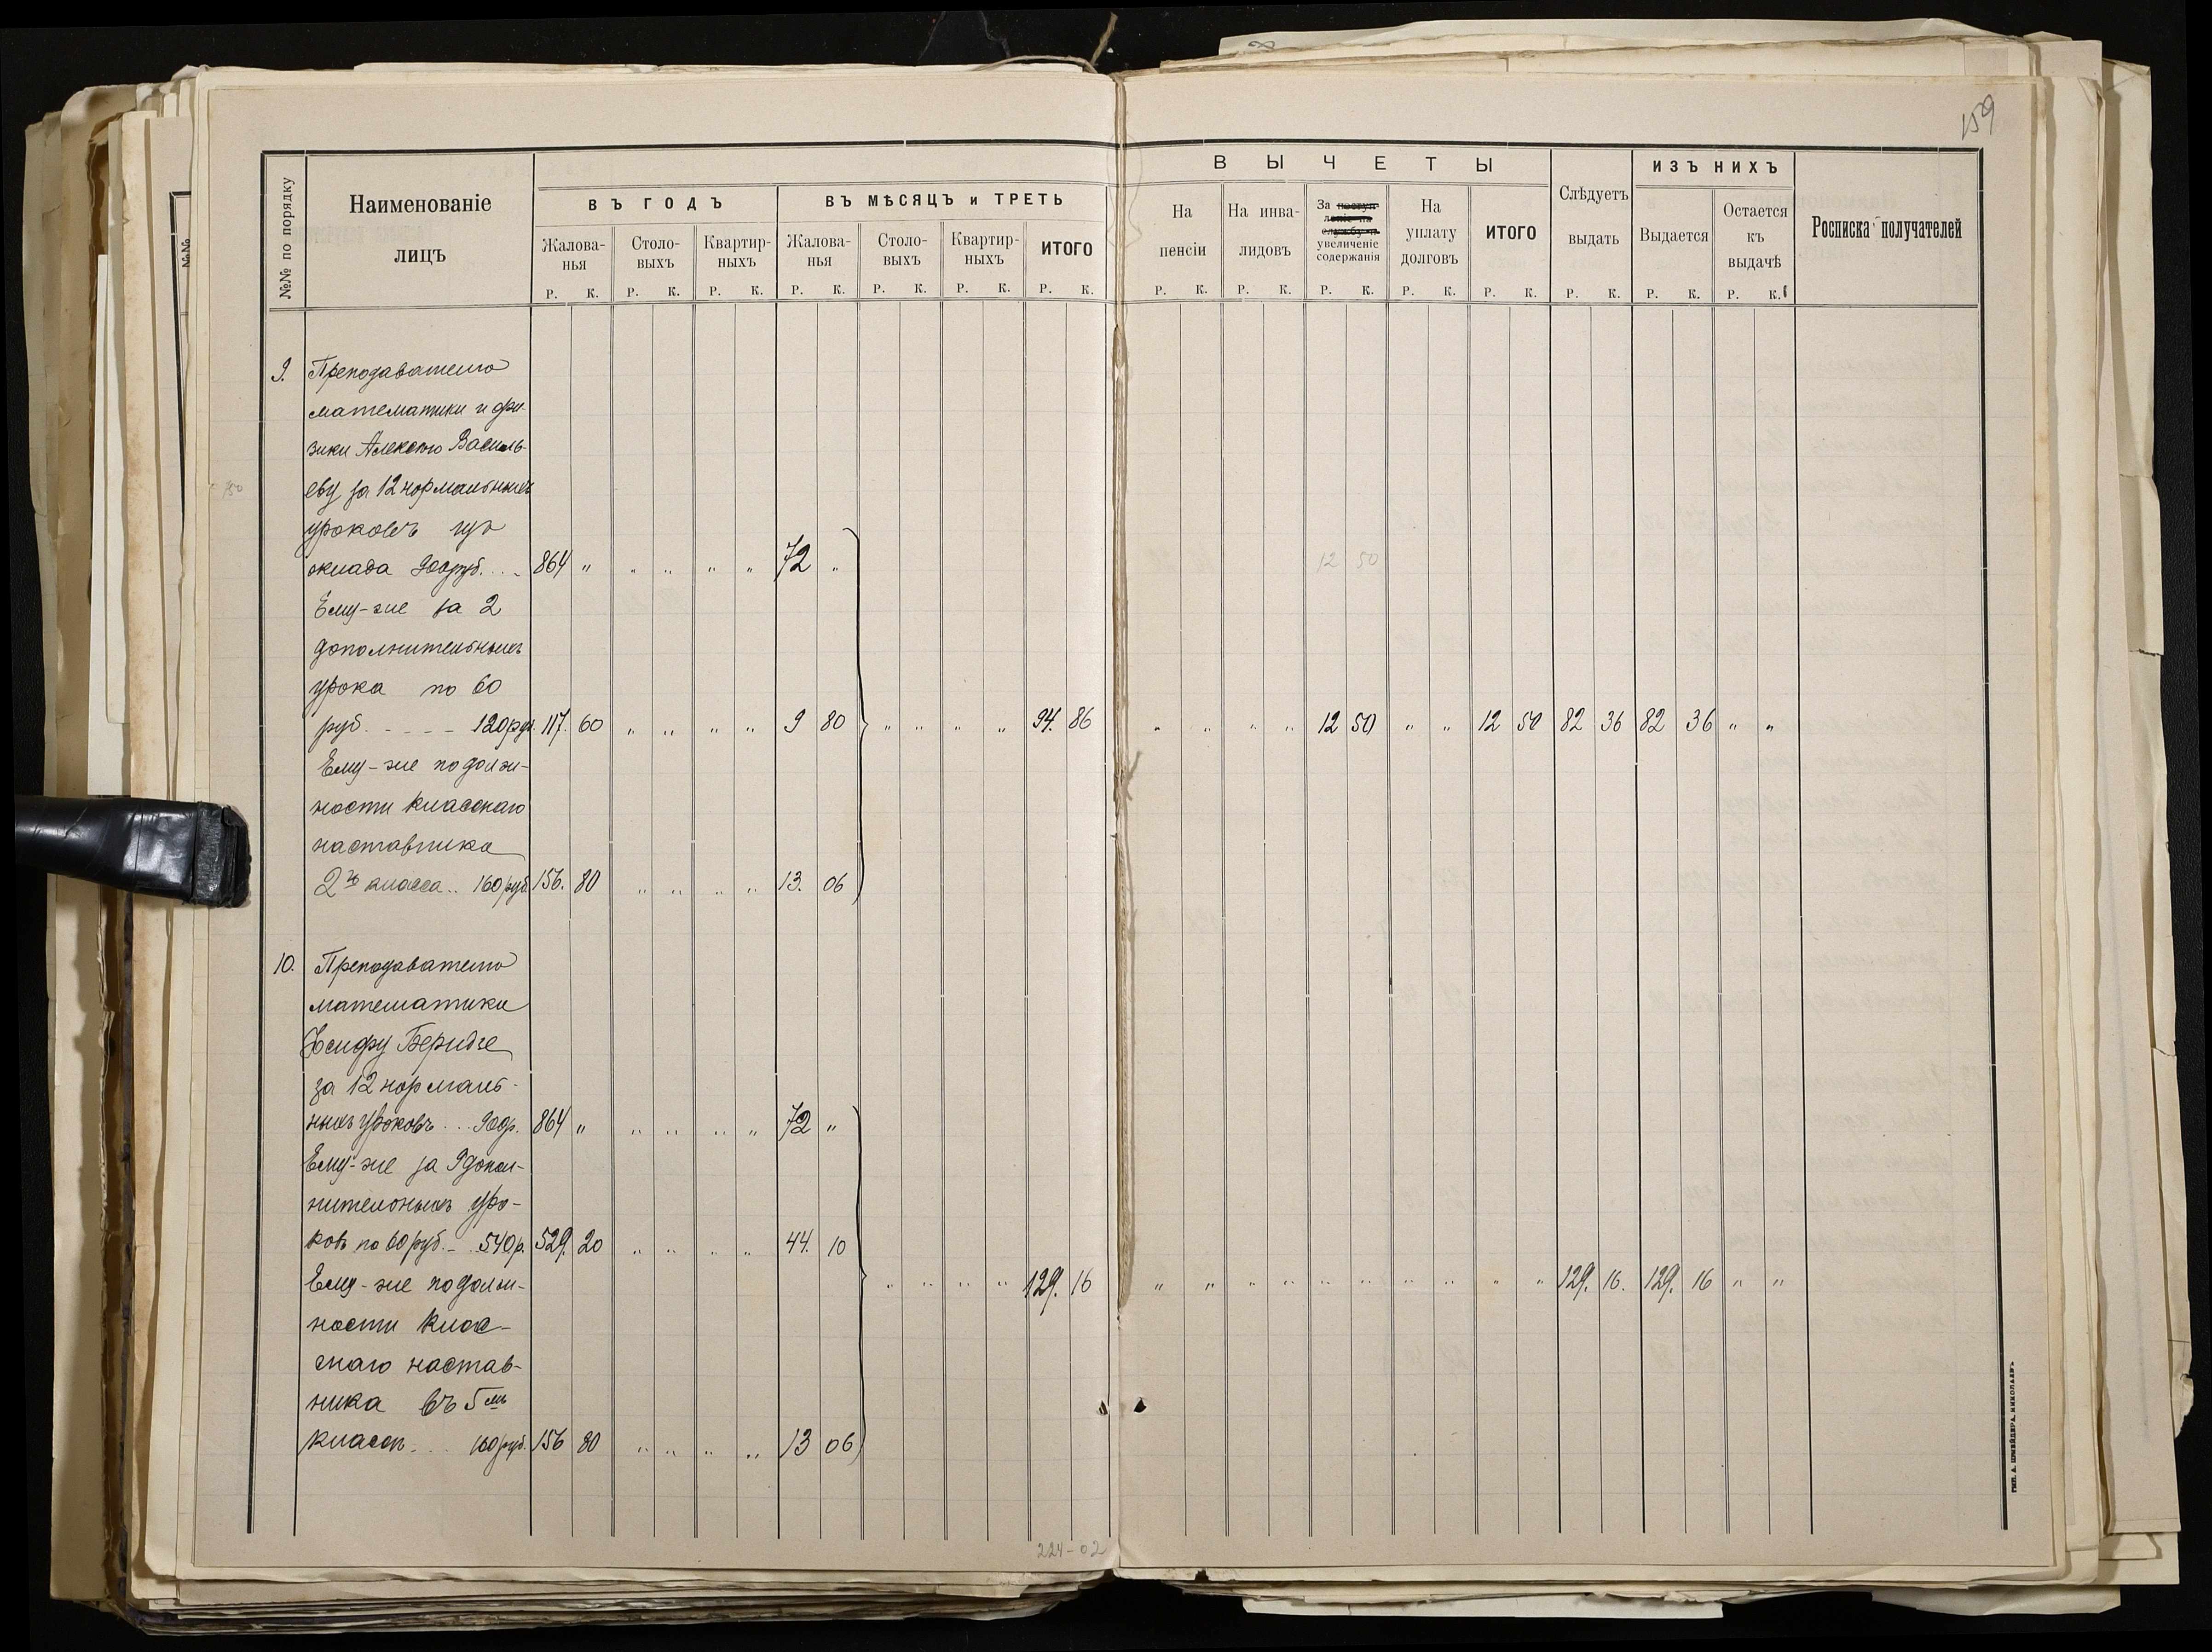 159
№№ по порядку
Наименованіе
лицъ
ВЪ ГОДЪ
ВЪ МѢСЯЦЪ и ТРЕТЬ
Жалова-
нья
Столо-
выхъ
Квартир-
ныхъ
Жалова-
нья
Столо-
выхъ
Квартир-
ныхъ
ИТОГО
Р. К. Р. К. Р. К. Р. К. Р. К. Р. К. Р. К.
ВЫЧЕТЫ
На
пенсіи
На инва-
лидовъ
За поступ-
леніе на
службу и
увеличеніе
содержанія
На
уплату
долговъ
ИТОГО
Слѣдуетъ
выдать
ИЗЪ НИХЪ
Выдается
Остается
къ
выдачѣ
Росписка получателей
Р. К. Р. К. Р. К. Р. К. Р. К. Р. К. Р. К. Р. К.
9. Преподавателю
математики и фи-
зики Алексѣю Василь-
еву за 12 нормальныхъ
уроковъ изъ
оклада 900 руб. . . 864 " " " " " 72 "
12 50
Ему-же за 2
дополнительныхъ
урока по 60
руб. - - - - 120 руб. 117. 60 " " " " 9 80 " " " " 94. 86 " " " " 12 50 " " 12 50 82 36 82 36 " "
Ему-же по долж-
ности класснаго
наставника
2го класса .. 160 руб. 156. 80 " " " " 13. 06
10. Преподавателю
математики
Іосифу Беридзе
за 12 нормаль-
ныхъ уроковъ ... 900р. 864 " " " " " 72 "
Ему-же за 9 допол-
нительныхъ уро-
ковъ по 60 руб. - . 540р. 529. 20 " " " " 44. 10
Ему-же по долж- " " " " 129. 16 " " " " " " " " " " 129. 16. 129. 16 " "
ности клас-
снаго настав-
ника въ 5мъ
классѣ . . . 160 руб. 156 80 " " " " 13 06
224-02
ТИП. А. ШНЕЙДЕРА, НИКОЛАЕВЪ